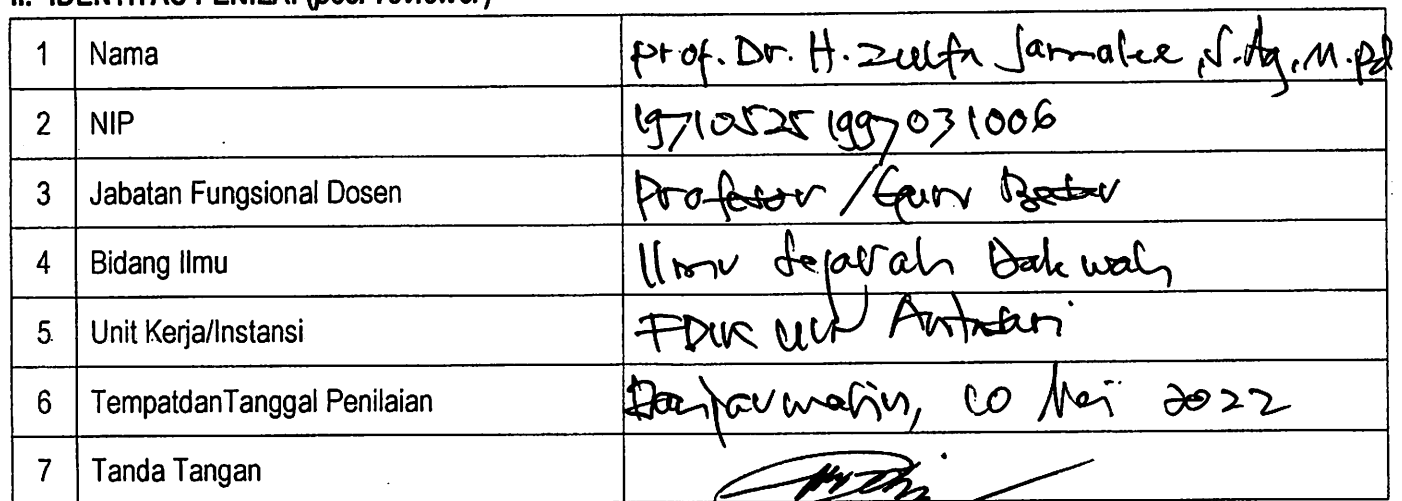 II. IDENTITAS PENILAI (peer reviewer)
1 Nama Prof. Dr. H. Zulfa Jamalie, S.Ag, M.Pd
2 NIP 197105251997031006
3 Jabatan Fungsional Dosen Profesor / Guru Besar
4 Bidang Ilmu Ilmu Sejarah Dakwah
5 Unit Kerja/Instansi FDIK UIN Antasari
6 TempatdanTanggal Penilaian Banjarmasin, 10 Mei 2022
7 Tanda Tangan